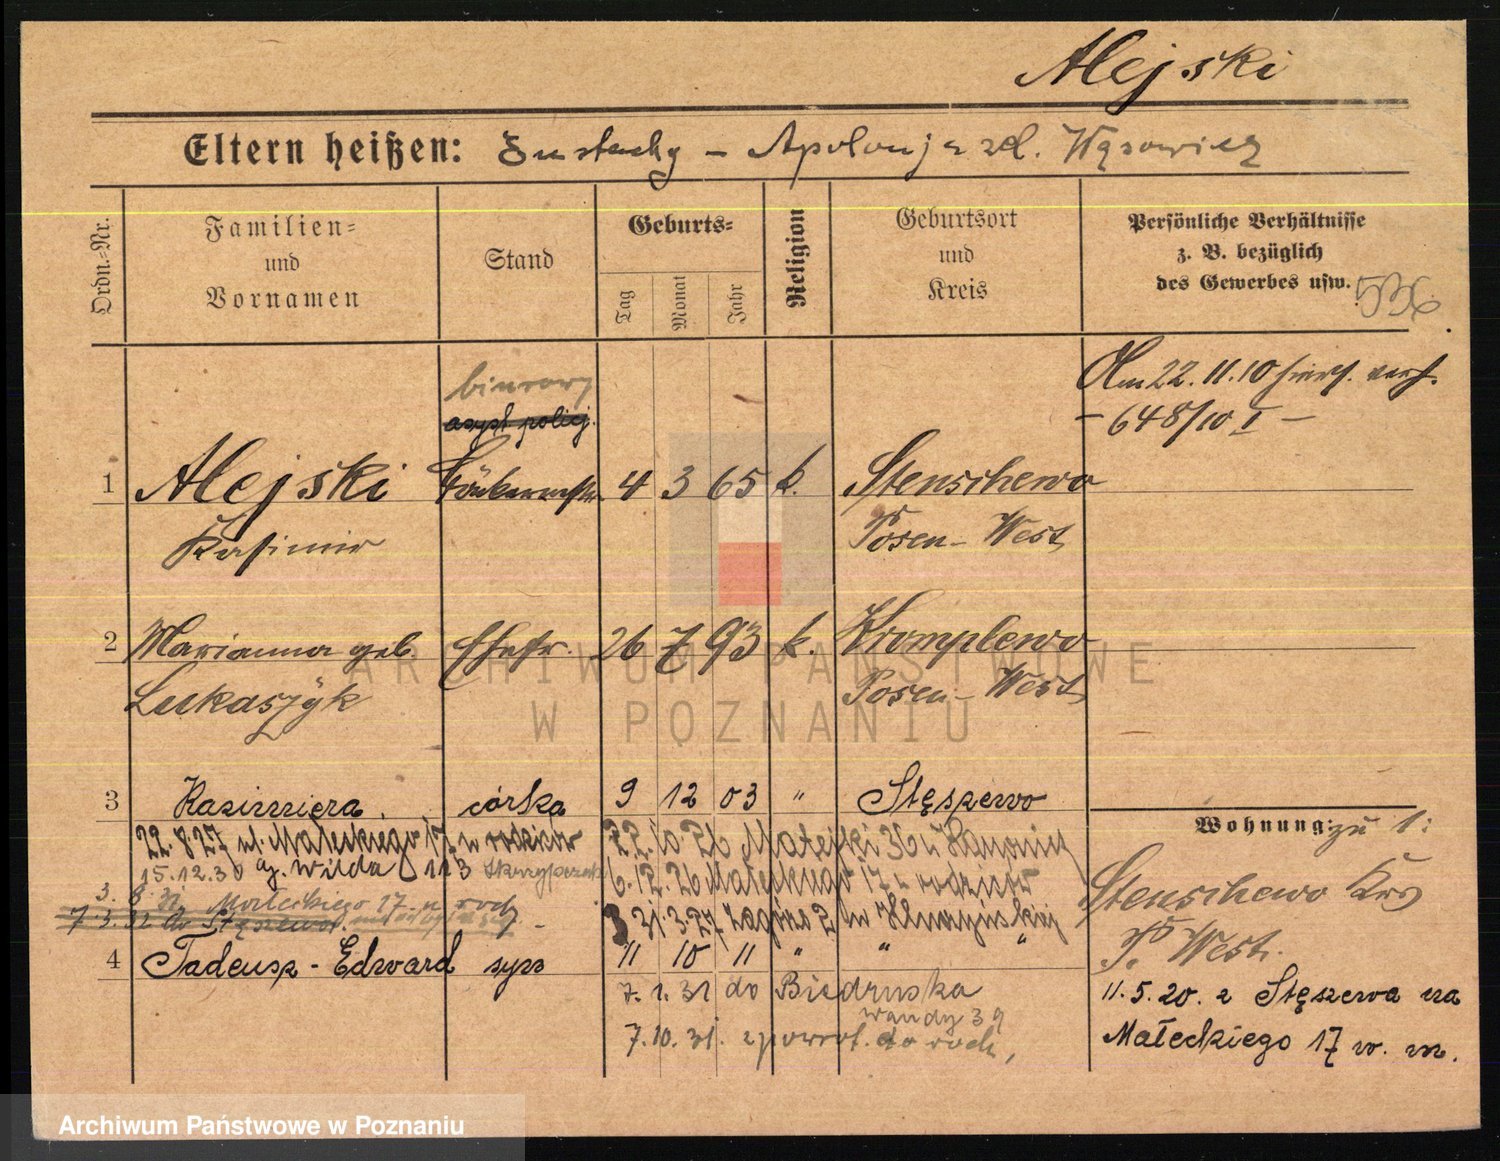 Alejski
Eltern heißen: Eustachy – Apolonja zd. Wąsowicz
Ordn.-Nr.
Familien-
und
Vornamen
Stand
Geburts-
Tag
Monat
Jahr
Religion
Geburtsort
und
Kreis
Persönliche Verhältnisse
z. B. bezüglich
des Gewerbes usw.
536.
Am 22.11.10
– 648/10 I –
biurowy
asyst policij.
1 Alejski 4 3 65 k. Stenschewo
Kasimir Posen-West
2 Marianna geb. Ehefr. 26 7 93 k. Kromplewo
Lukaszÿk Posen-West
3 Kazimiera. córka 9 12 03 " Stęszewo
Wohnung: zu 1:
22.8.27 ul. Małeckiego 17 u rodziców
Matejki 36 u
15.12.30 Wilda 113
6.12.26 Małeckiego 17 u
Stenschewo Krs
Małeckiego 17 u rodz.
7.3.32 do Stęszewa.
31.3.27
P. West.
4 Tadeusz-Edward syn 11 10 11 " " "
7.1.31 do Biedruska
11.5.20. z Stęszewa na
Wandy 39
7.10.31. zpowrot. do rodz,
Małeckiego 17 w. m.
ARCHIWUM PAŃSTWOWE
W POZNANIU
Archiwum Państwowe w Poznaniu